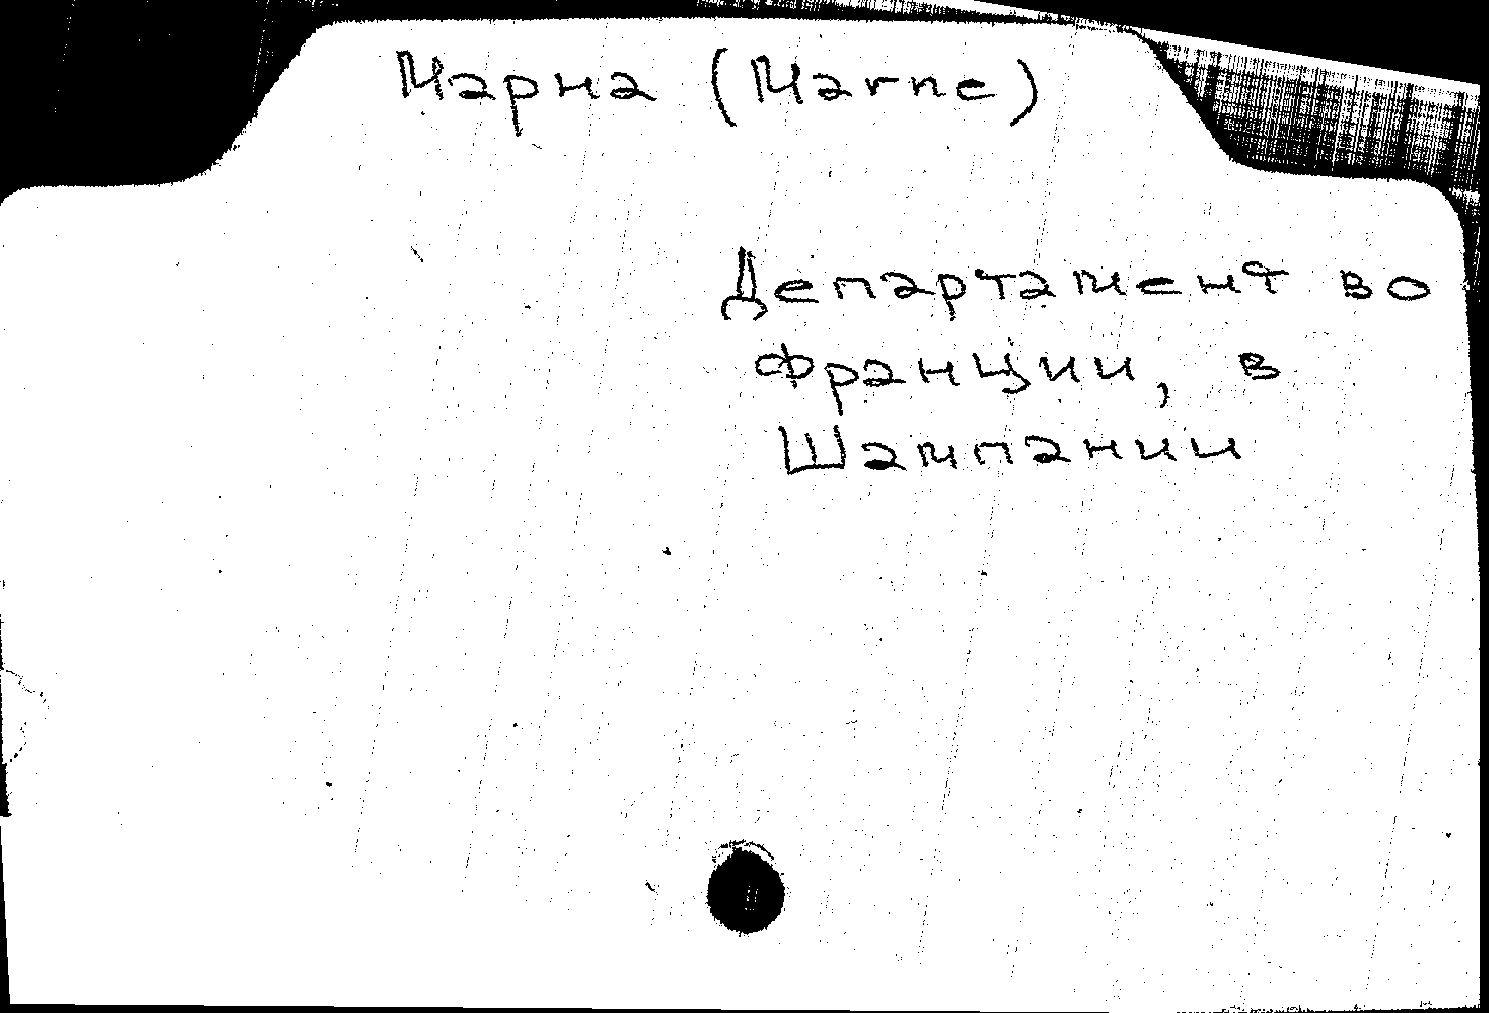 Марна (Marne)
Департамент во
Франции, в
Шампании